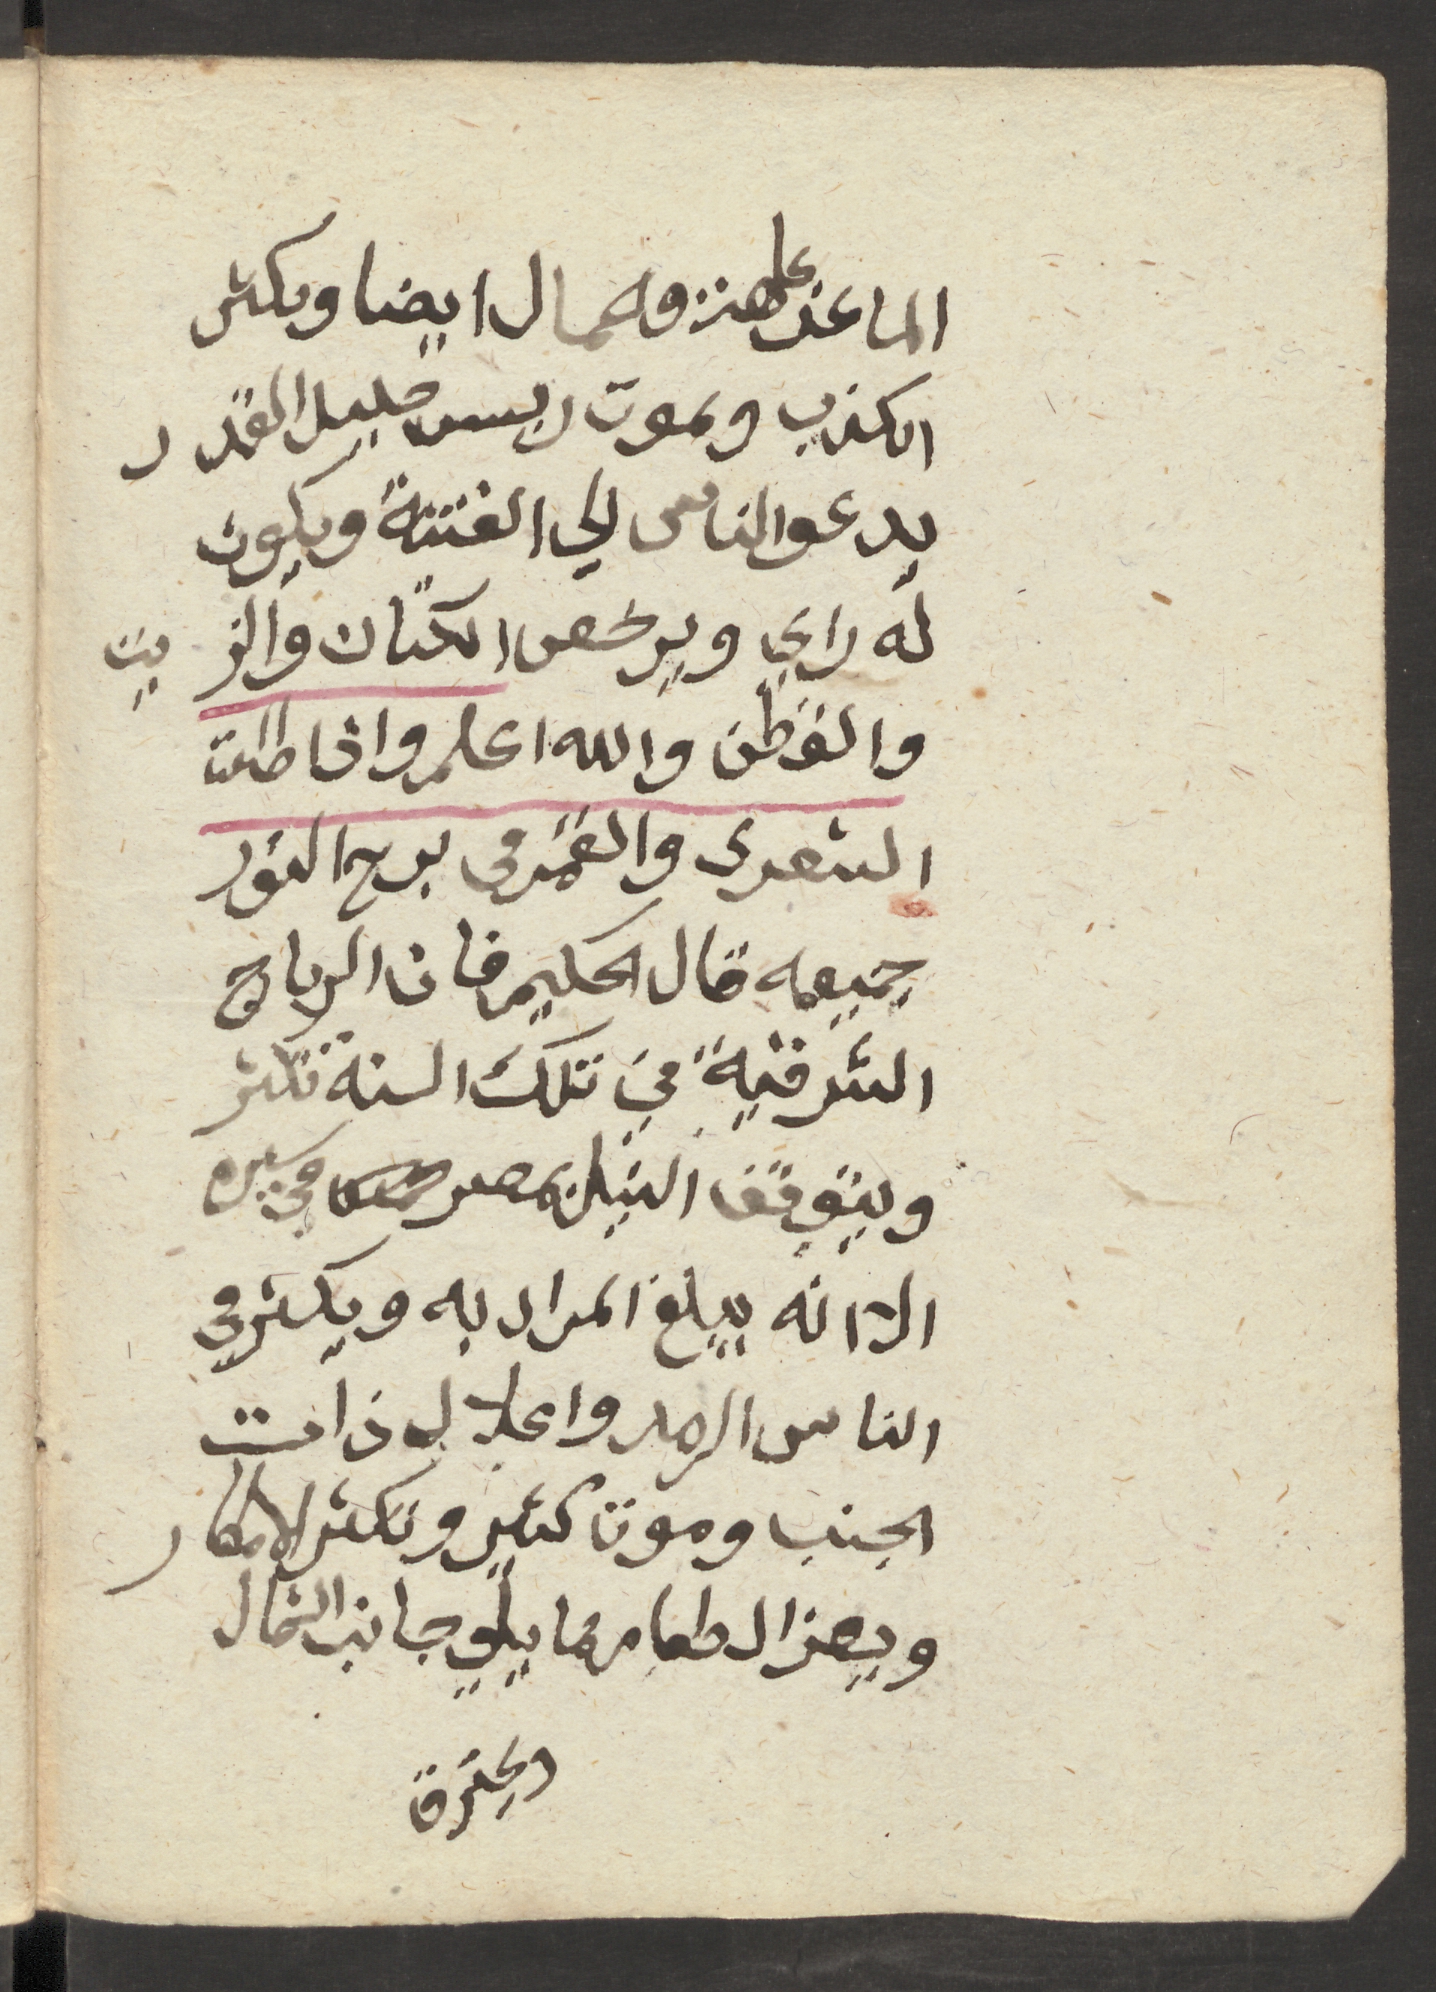 الماعز والجمال ايضا ويكثر
الكذب ويموت ريس جليل القدر
يدعوا الناس الي الفتنة ويكون
له راي ويرخص الكتان والزيت
والقطن والله اعلم واذا طلعت
الشعرى والقمر في برج الثور
جميعه قال الحكيم فان الرياح
الشرقية في تلك السنة تكثر
ويتوقف النيل بمصر في سيره
الا انه يبلغ المراد به ويكثر في
الناس الرمد واعلال ذات
الجنب وموت كثير وتكثر الامطار
ويعز الطعام مما يلي جانب الشمال
ويحترق